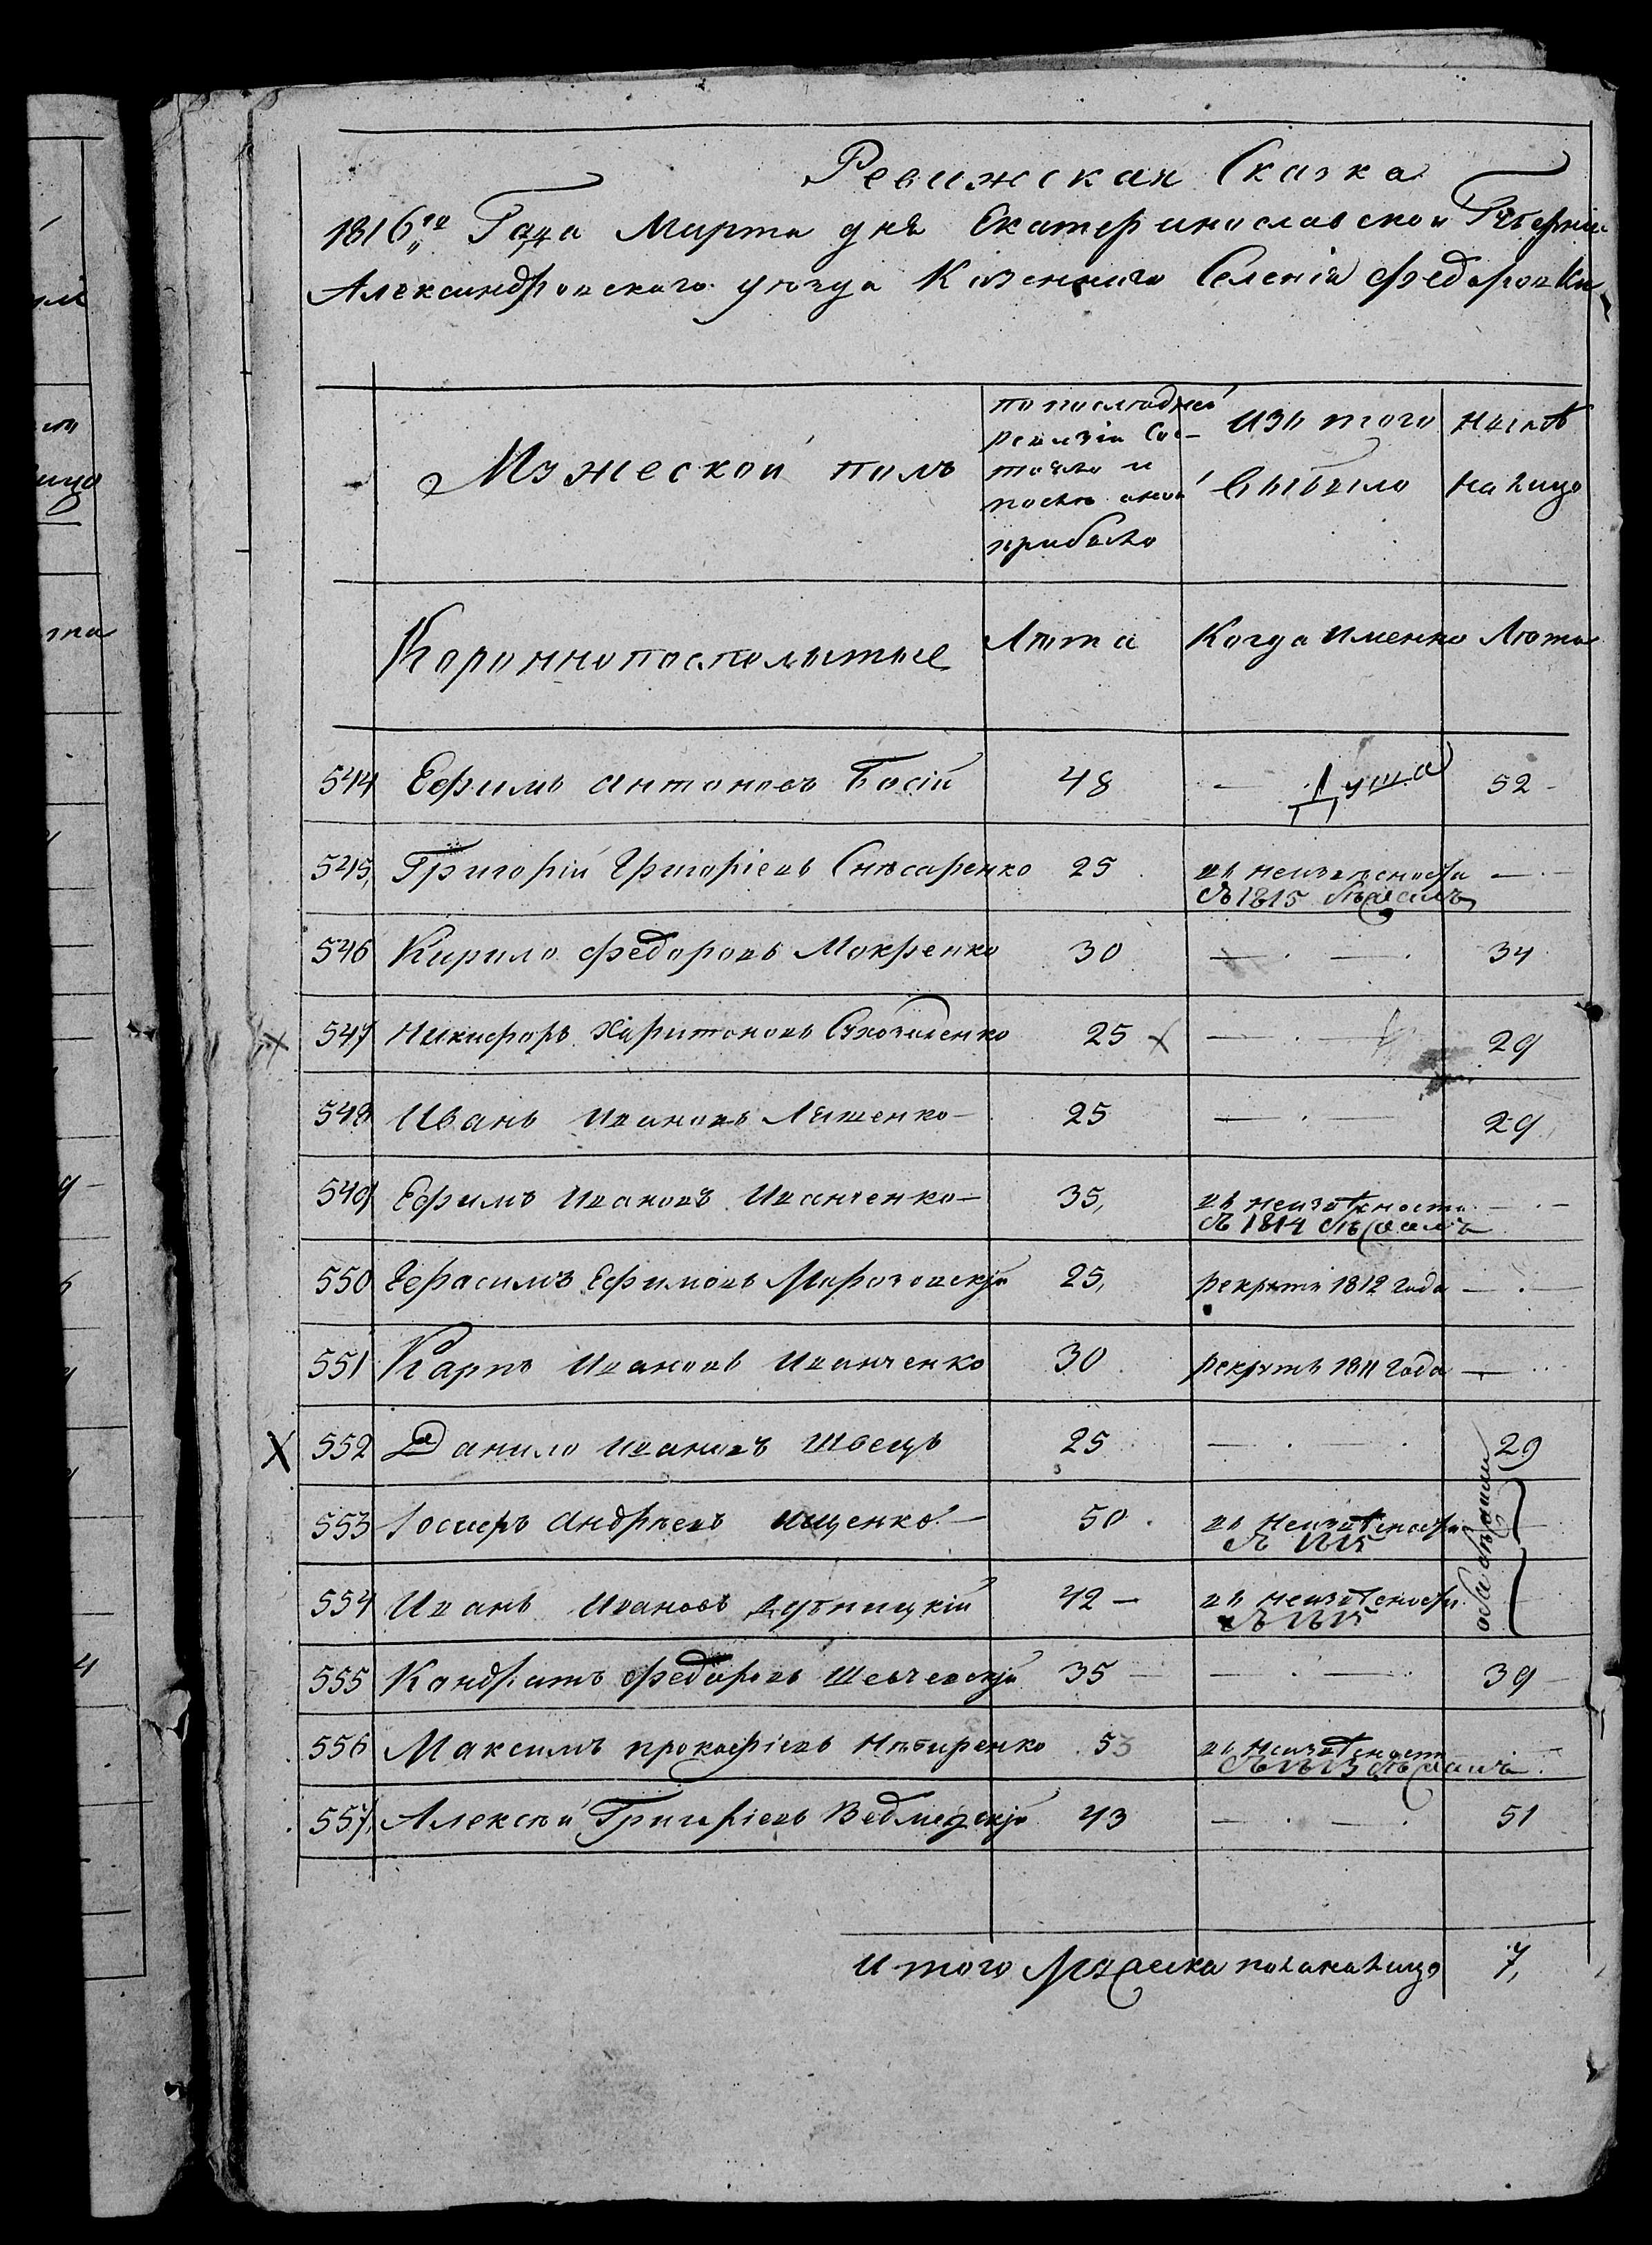 Ревижская Сказка
1816го Года Марта дня Екатеринославской Губерніи
Александровскаго уѣзда Казеннаго Селенія Федоровки
Мужеской полъ
по последней
ревизіи Сос-
тояло и
после оной
прибыло
изъ того
выбыло
Нынѣ
на лицо
Короннопосполытые
Лѣта
Когда именно
Лѣта
544 Ефимъ Антоновъ Босій 48 — Душа 52
545 Григорій Григоріевъ Снѣсаренко 25 въ неизвѣсности — . —
съ 1815
546 Кирило Федоровъ Мокренко 30 — . — . 34
547 Никифоръ Харитоновъ 25 — . — 29
548 Иванъ Ивановъ Ляшенко 25 — . — 29
549 Ефимъ Ивановъ Иванченко 35, въ неизвѣсности — . —
съ 1814
550 Герасимъ Ефимовъ Морозовскій 25, рекрутъ 1812 года — . —
551 Карпъ Ивановъ Иванченко 30 рекрутъ 1811 года —
552 Данило Ивановъ Швецъ 25 — . — . 29
553 Іосифъ Андрѣевъ Ищенко 50 въ неизвѣсности
съ 1815
оба
554 Иванъ Ивановъ Дубницкій 42 — въ неизвѣсности
съ 1815
555 Кондратъ Федоровъ Шевчевскій 35 — . — . 39
556 Максимъ Прокофіевъ 53 въ неизвѣсности
съ 1813
557 Алексѣй Григоріевъ Ведмедскій 43 — . — . 51
Итого Мужеска пола налицо 7,